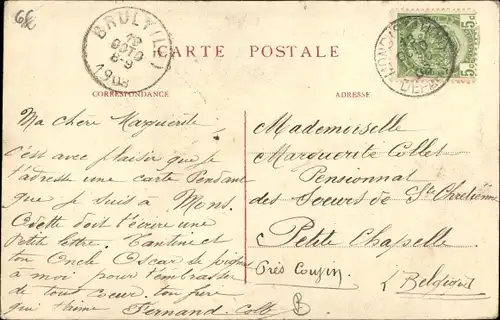 CARTE POSTALE
CORRESPONDANCE
ADRESSE
1908
8-9
DEPART
5c 5c
Ma chère Marguerite,
C'est avec plaisir que je
t'adresse une carte Pendant
que je suis à Mons.
Odette doit t'écrire une
Petite lettre. Tantine et
ton Oncle Oscar se joignent
à moi pour t'embrasser
de tout coeur, ton frère
qui t'aime Fernand. Collet
Mademoiselle
Marguerite Collet
Pensionnat
des Soeurs de Ste Chrétienne
Petite Chapelle
Près Couvin
Belgique
B